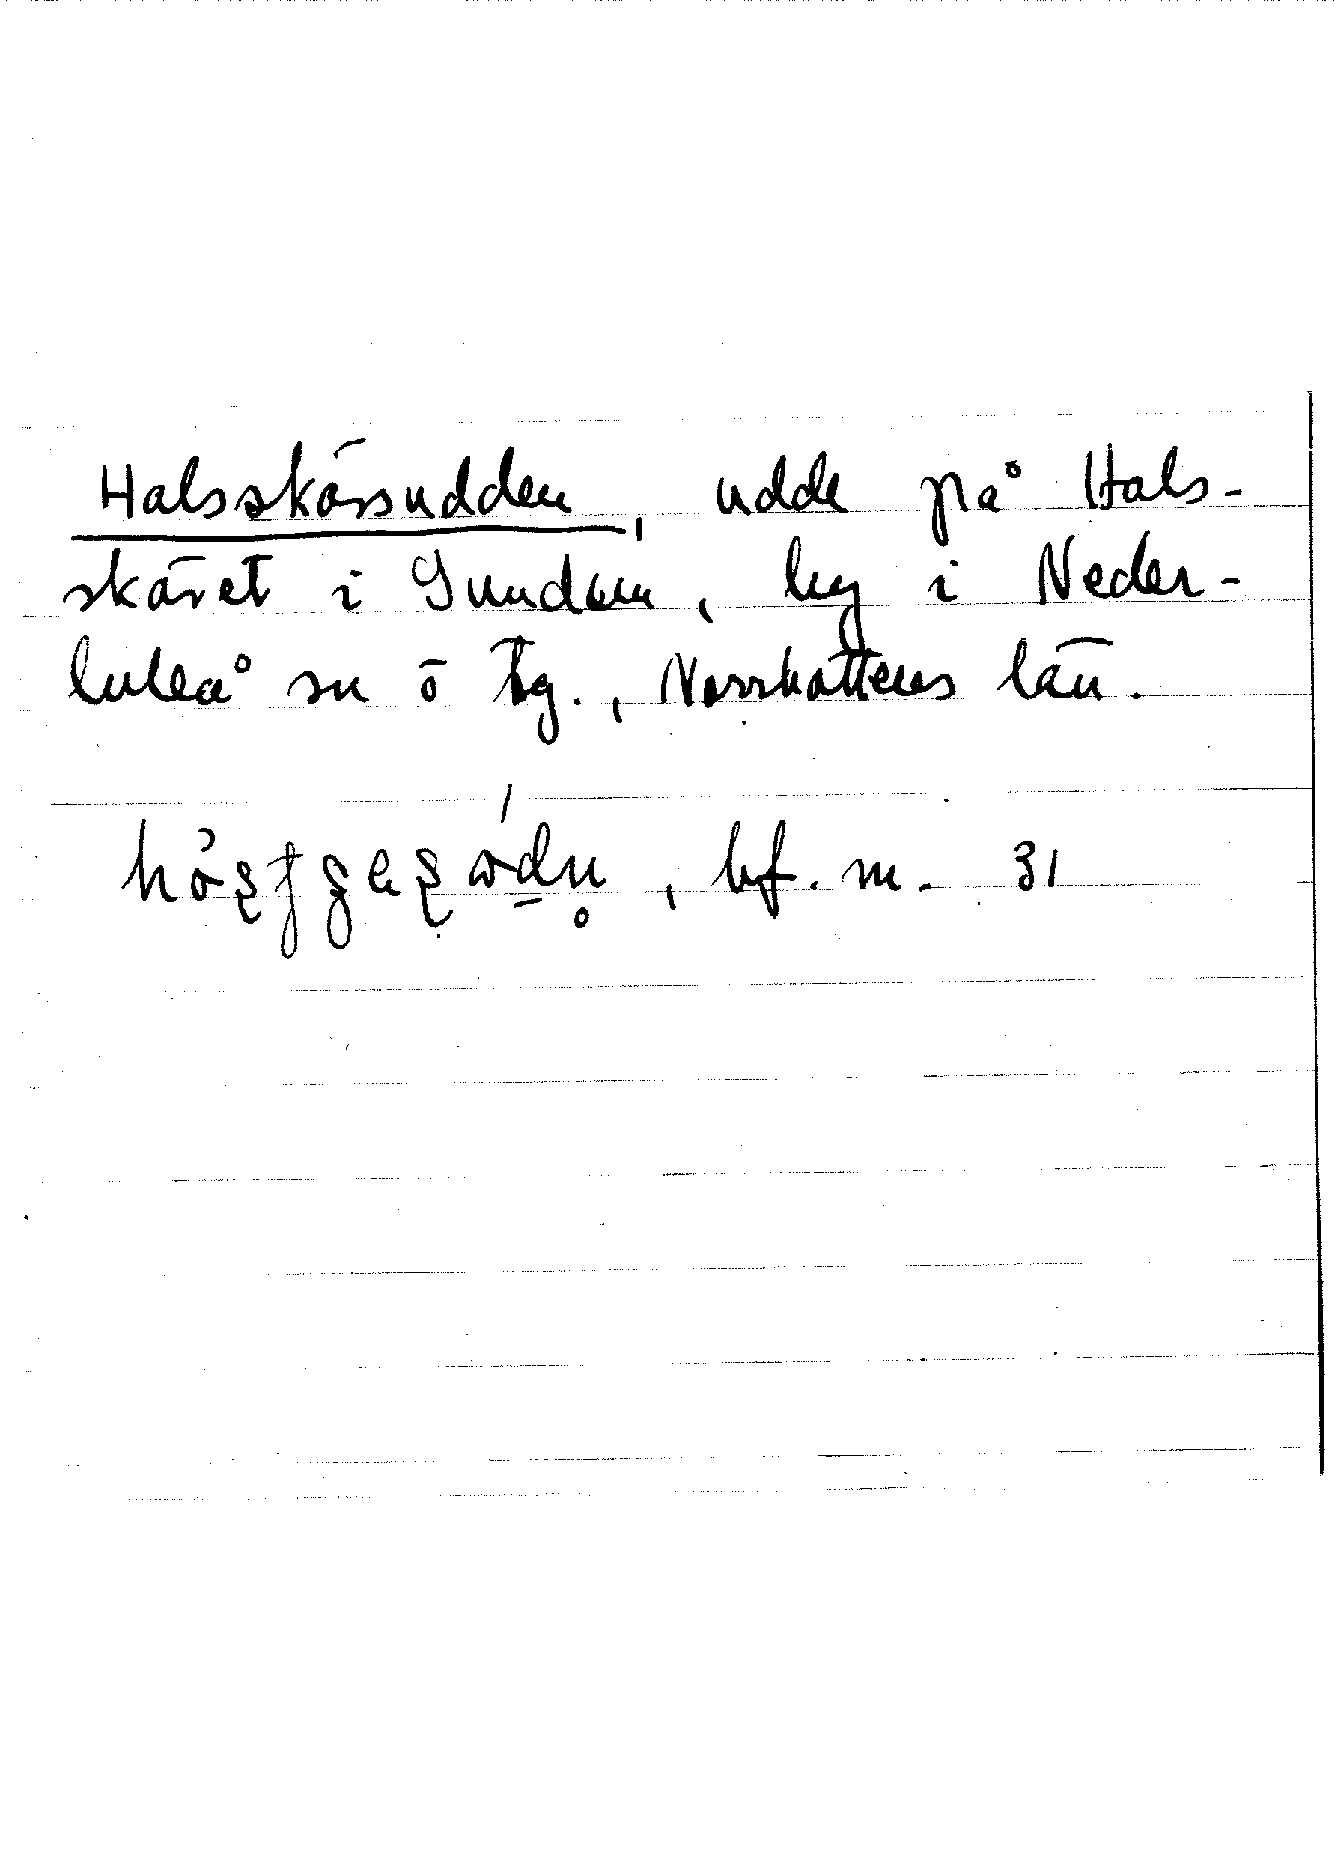 Halsskärsudden, udde på Hals-
skäret i Sundom, by i Neder-
luleå sn ö tg., Norrbottens län.
, bf. m. 31